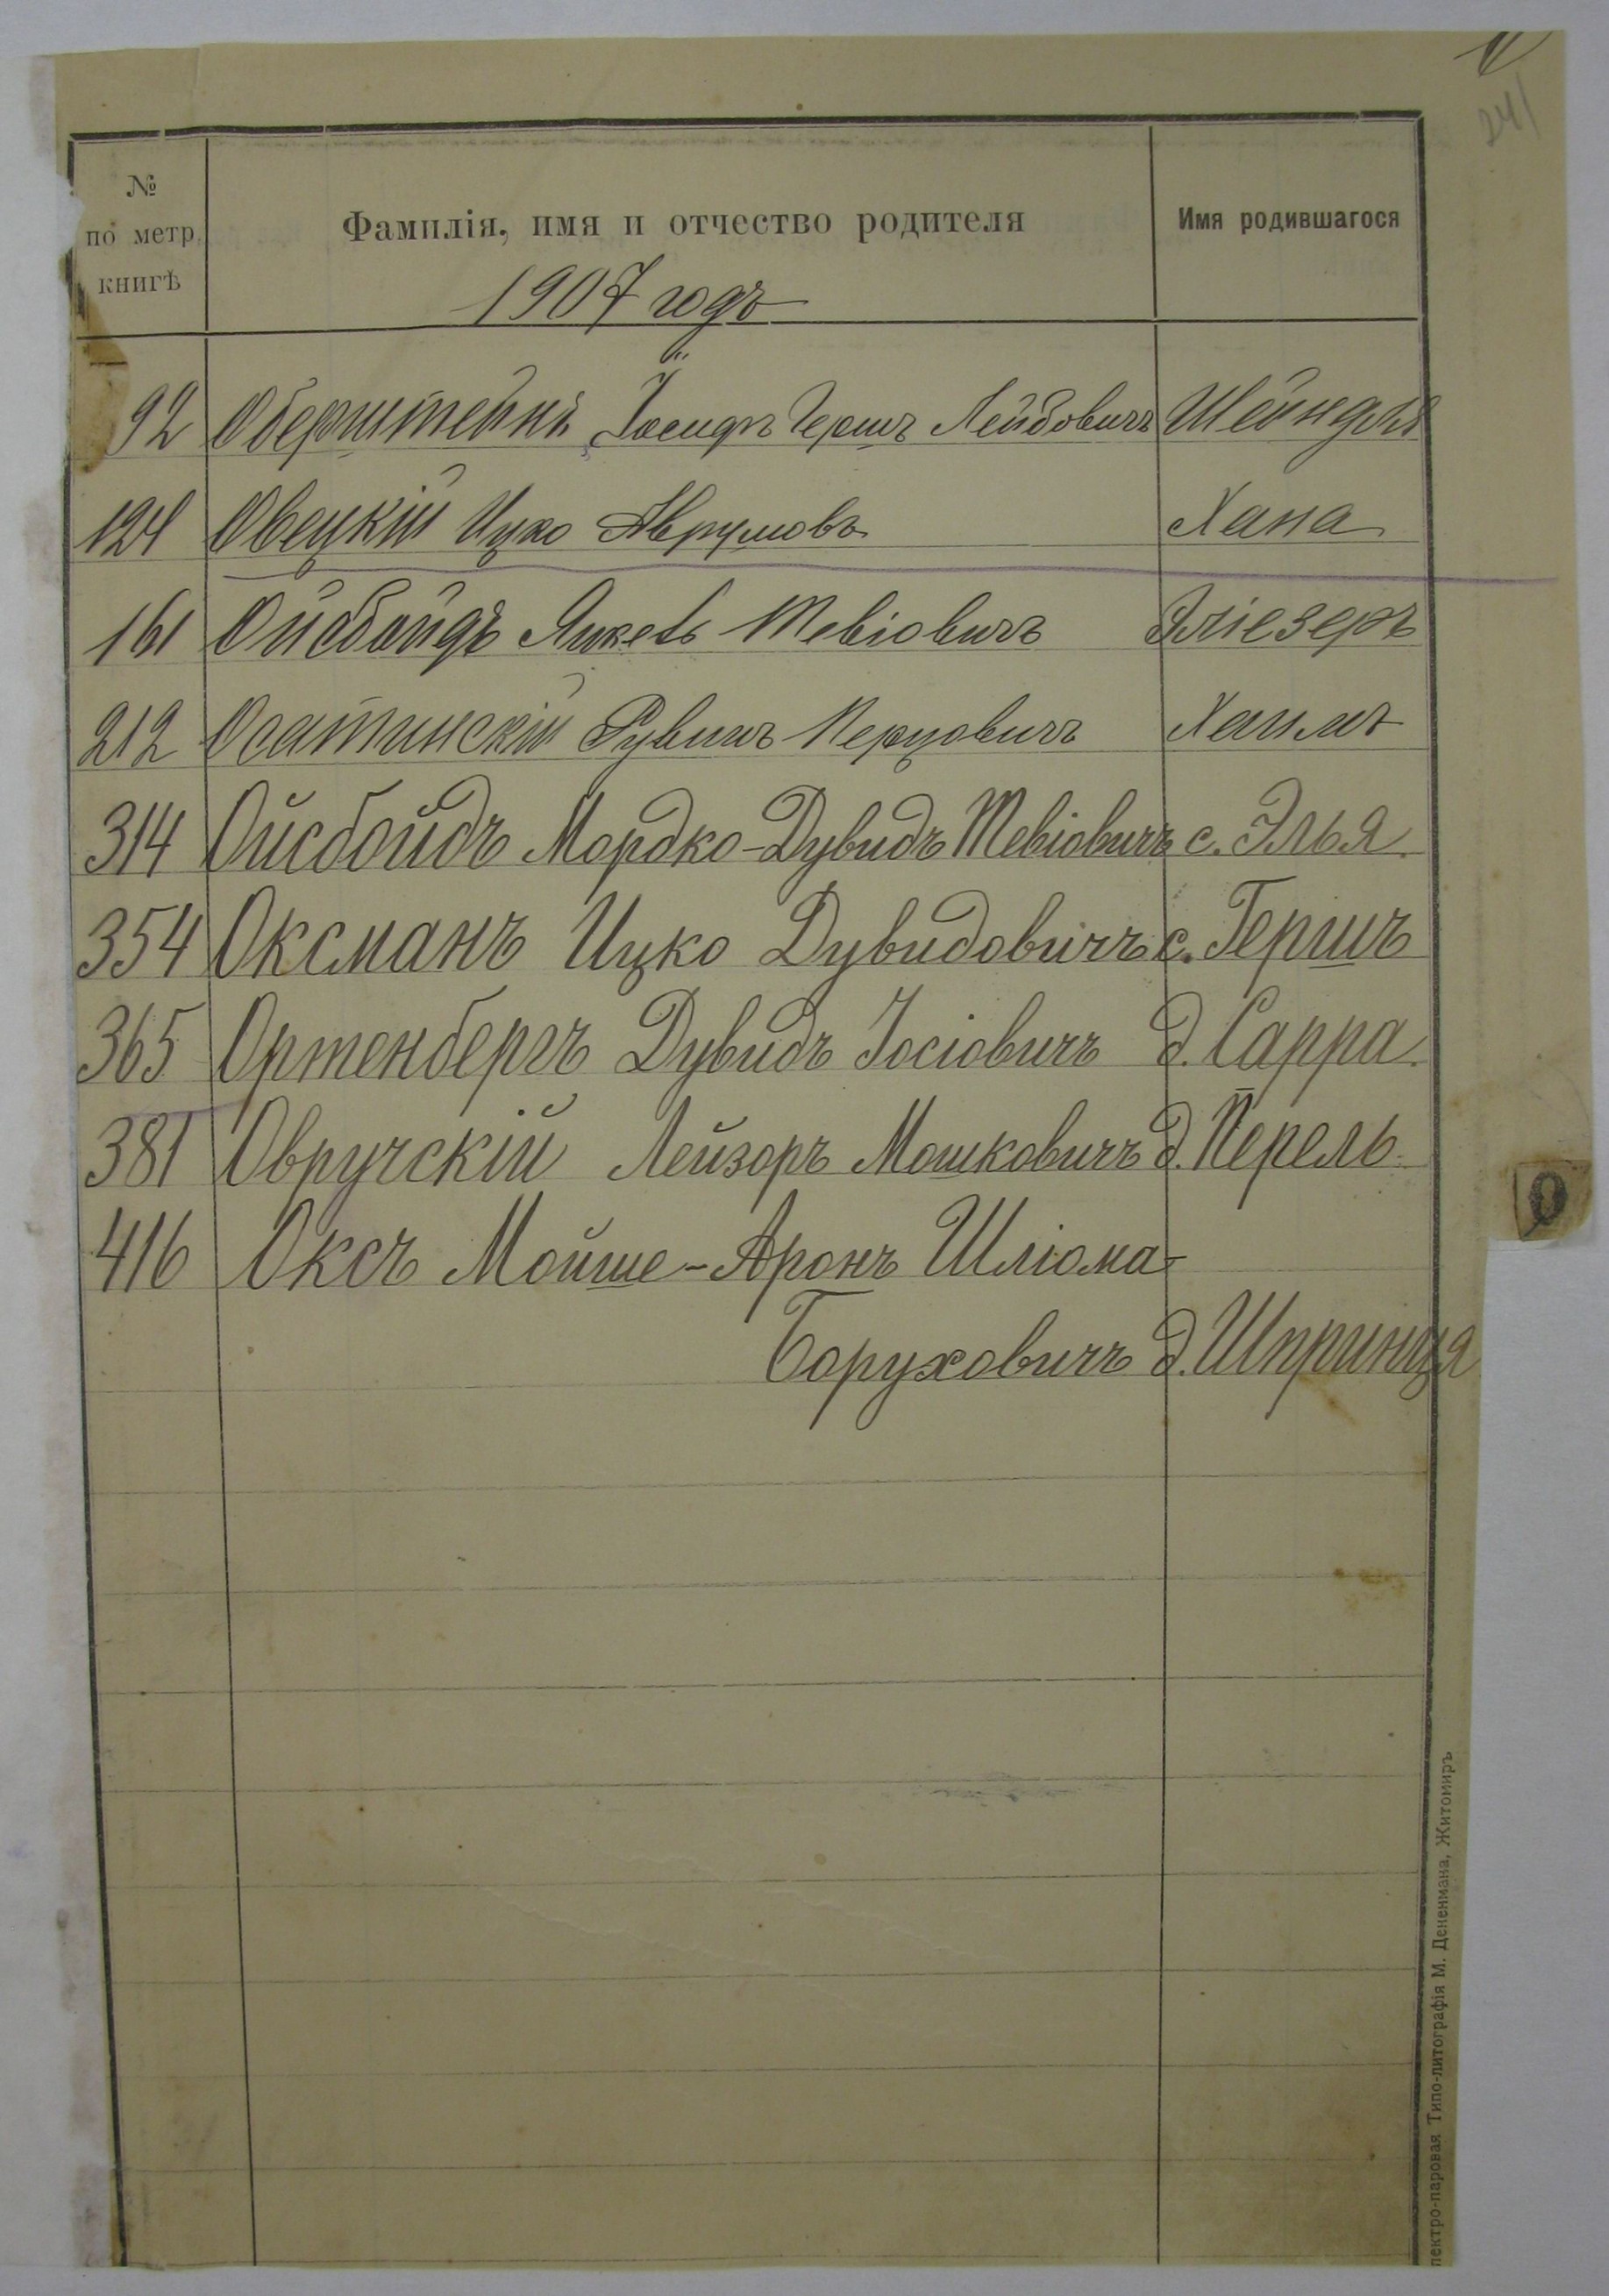 241
№ по метр. книгѣ Фамилія, имя и отчество родителя Имя родившагося
1907 годъ
92 Оберштейнъ Іосифъ Гершъ Лейбовичъ Шейндля
124 Овецкій Ицко Аврумовъ Хана
161 Ойсбойдъ Янкель Тевіовичъ Эліезеръ
212 Осатинскій Рувинъ Перцовичъ Хаимъ
314 Ойсбойдъ Мордко-Дувидъ Тевіовичъ с. Элья.
354 Оксманъ Ицко Дувидовичъ с. Гершъ
365 Ортенбергъ Дувидъ Іосіовичъ д. Сарра.
381 Овручскій Лейзоръ Мошковичъ д. Перель.
О
416 Оксъ Мойше-Аронъ Шліома-
Боруховичъ д. Шпринця
лектро-паровая Типо-литографія М. Дененмана, Житомиръ